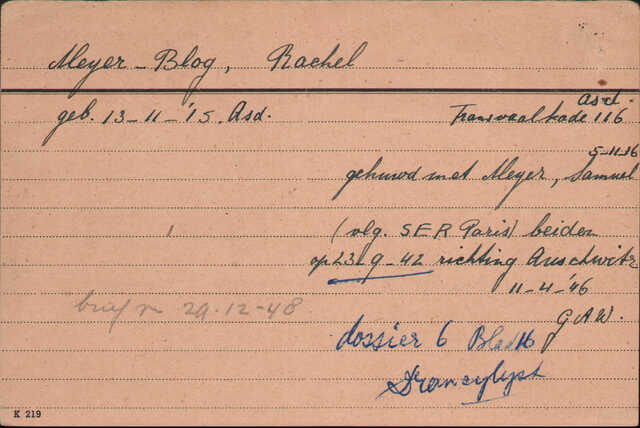 Meyer-Blog, Rachel
geb. 13-11-'15. Asd.
Asd.
Transvaalkade 116
5-11-16
gehuwd met Meyer, Samuel
(vlg. SER Paris) beiden
op 23-9-42 richting Auschwitz
11-4-'46
G.A.W.
brief v 29-12-48
dossier 6 Blad 16
Drancylyst
K 219